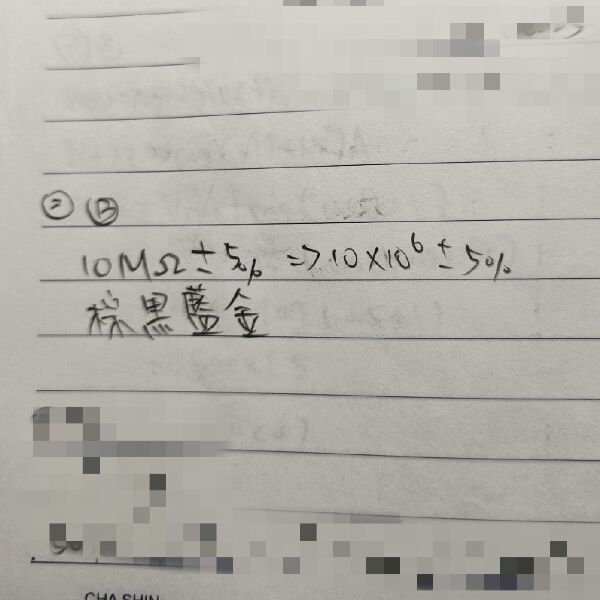 ② Ⓑ
10MΩ ± 5% => 10×10⁶ ± 5%
棕黑藍金
CHA SHIN